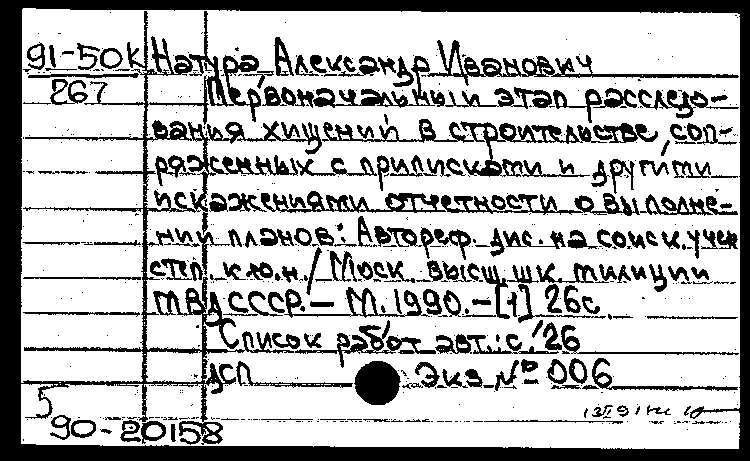 91-50к Натура Александр Иванович
267 Первоначальный этап расследо-
вания хищений в строительстве, соп-
ряженных с приписками и другими
искажениями отчетности о выполне-
нии планов: Автореф. дис. на соиск. учен
степ. к.ю.н. / Моск. высш. шк. милиции
МВД СССР. — М. 1990. — [1] 26с.
Список работ авт.: с. 26
ДСП Экз № 006
5
90-20158